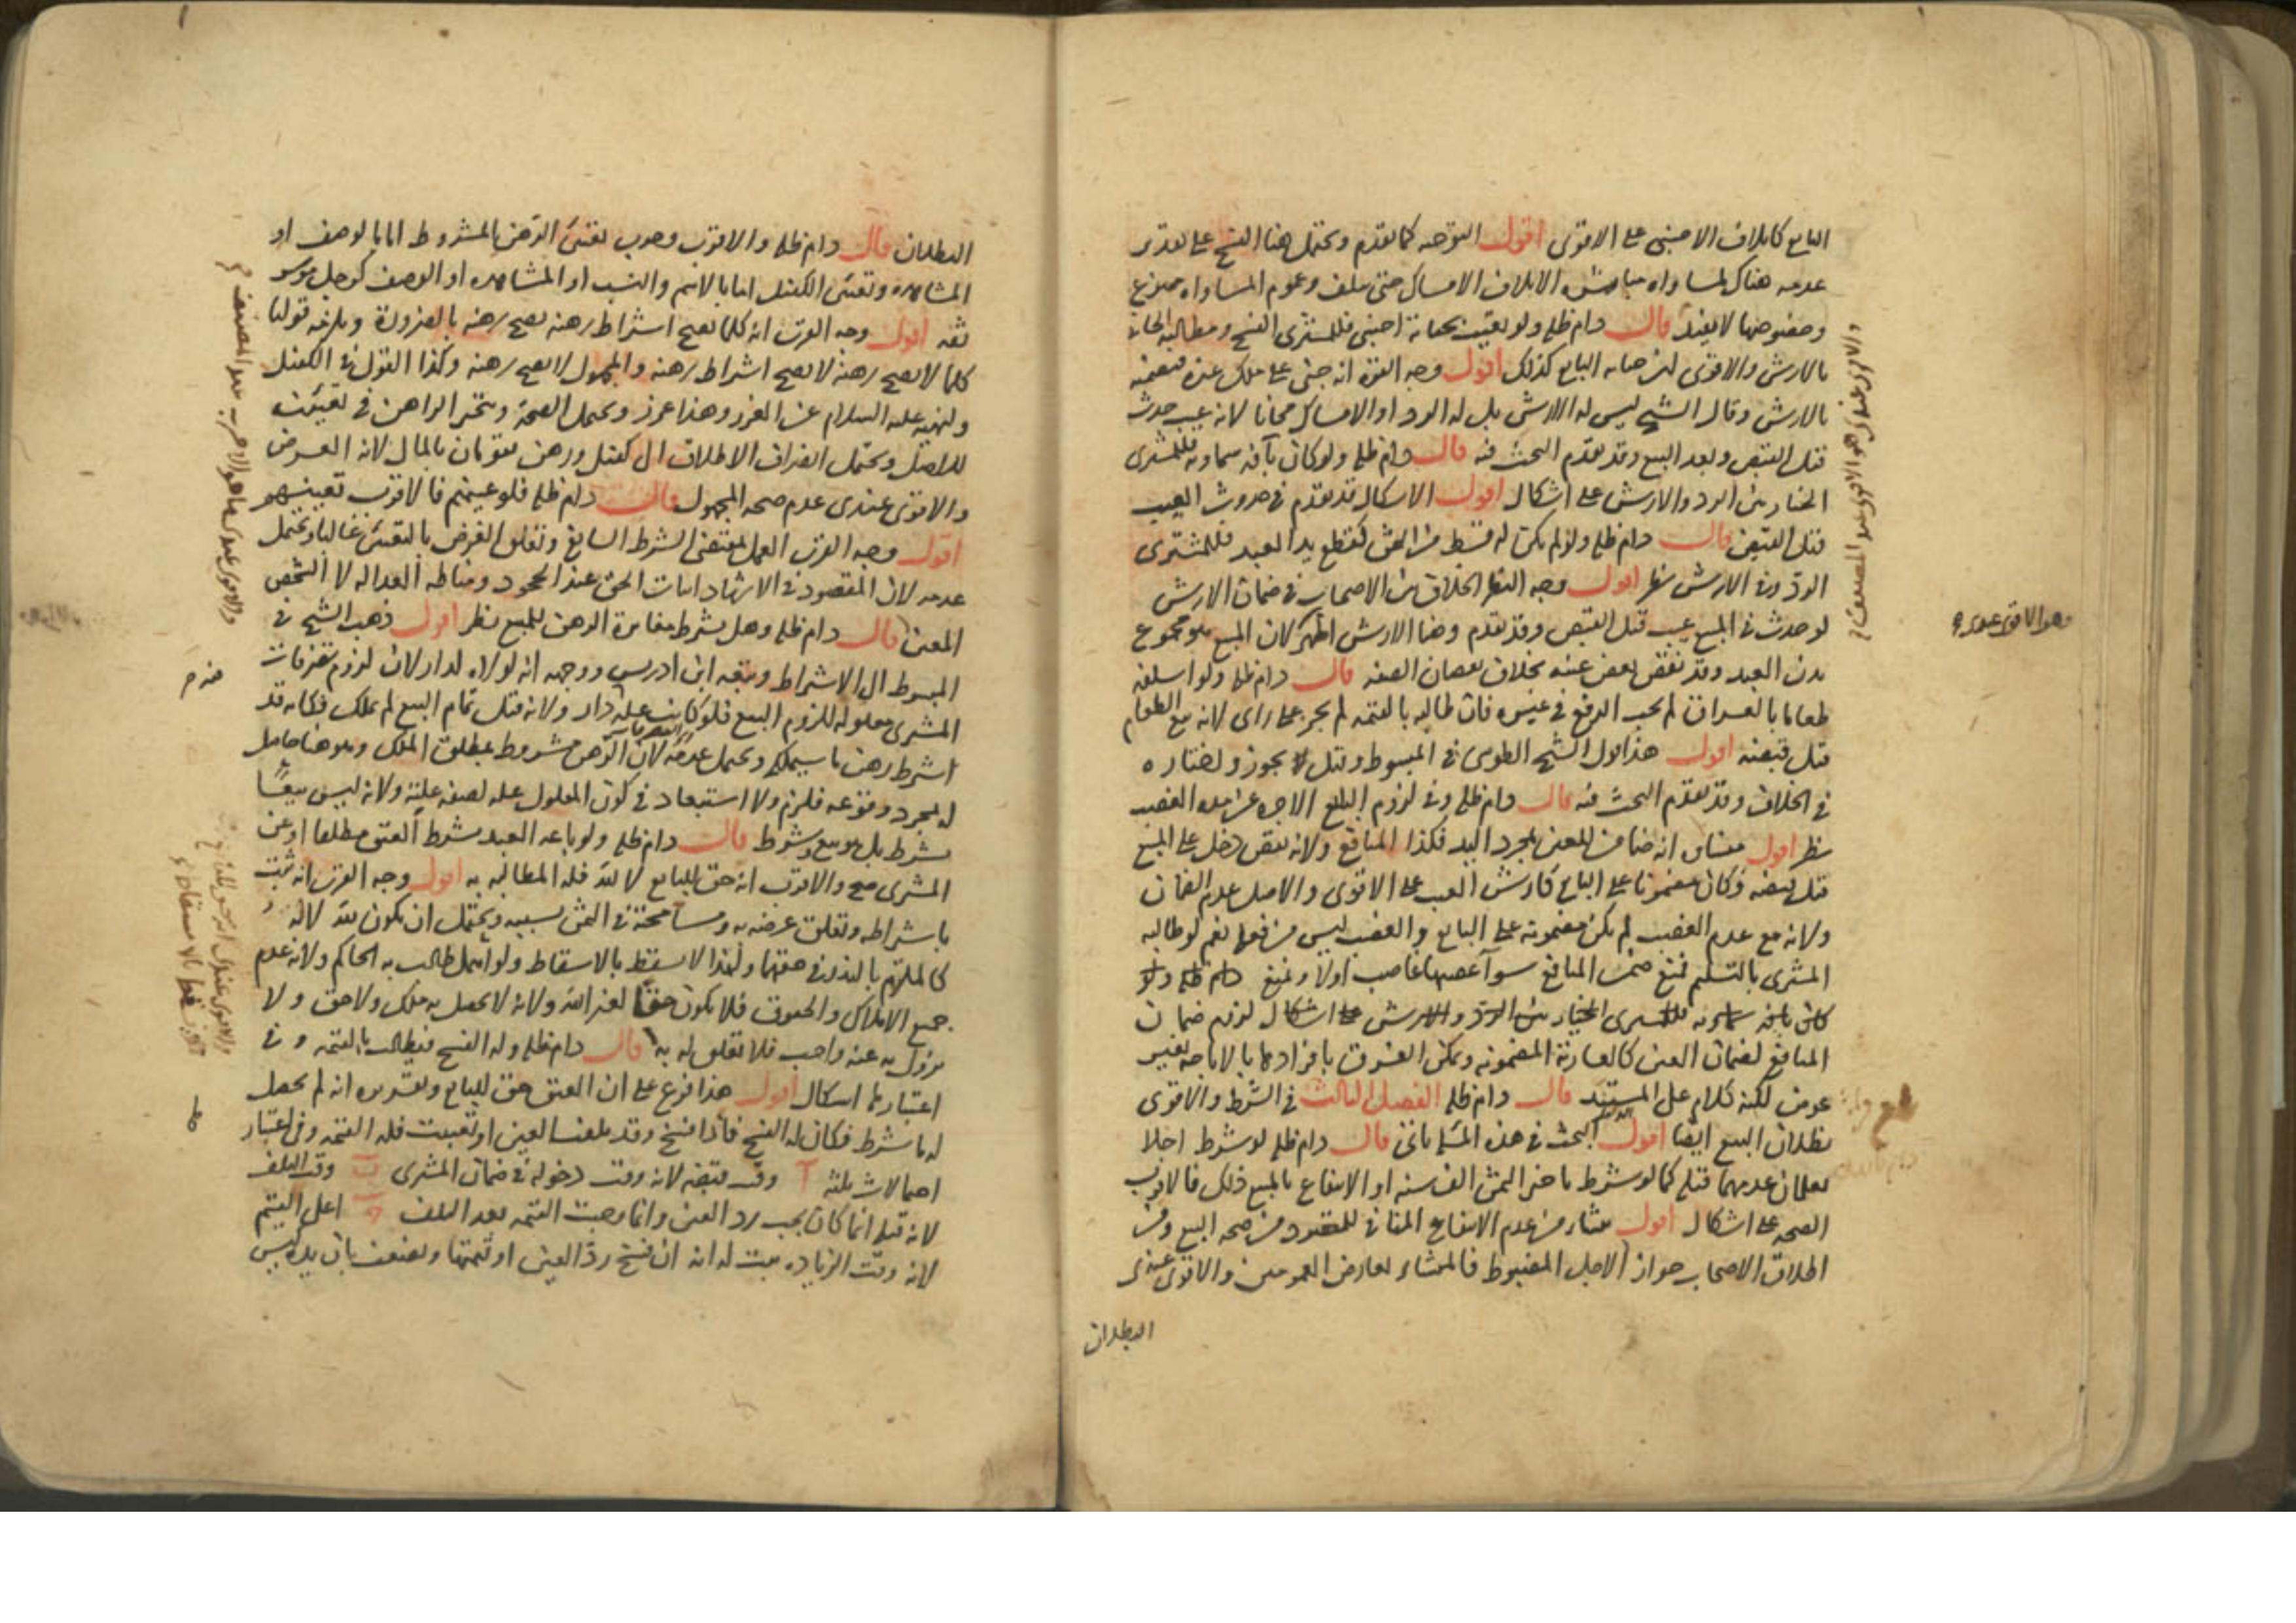 البايع كاتلاف الاجنبي على الاقوى اقول التوجيه كما تقدم ويحتمل هنا الفسخ على تقدير
عدمه هناك لمساواة مباشرة الاتلاف الامساك حتى يتلف وعموم المساواة ممنوع
وخصوصها لا يفيد قال دام ظله ولو تعيب بجناية اجنبي فللمشترى الفسخ ومطالبة الجانى
بالارش والاقوى ان جناية البايع كذلك اقول وجه القوة انه جنى على ملك غيره فيضمنه
بالارش وقال الشيخ ليس له الارش بل له الرد او الامساك مجانا لانه عيب حدث
قبل القبض وبعد البيع وقد تقدم البحث فيه قال دام ظله ولو كان بآفة سماوية فللمشترى
الخيار بين الرد والارش على اشكال اقول الاشكال قد تقدم في حدوث العيب
قبل القبض قال دام ظله ولو لم يكن له قسط من الثمن كقطع يد العبد فللمشترى
الرد وفي الارش نظر اقول وجه النظر الخلاف بين الاصحاب في ضمان الارش
لو حدث في المبيع عيب قبل القبض وقد تقدم وهنا الارش اظهر لان المبيع هو مجموع
بدن العبد وقد نقص بعض عينه بخلاف نقصان الصفة قال دام ظله ولو اسلفه
طعاما بالعراق لم يجب الدفع في غيره فان طالبه بالقيمة لم يجز على راى لانه بيع الطعام
قبل قبضه اقول هذا قول الشيخ الطوسى في المبسوط وقيل لا يجوز واختاره
في الخلاف وقد تقدم البحث فيه قال دام ظله وفي لزوم البايع الاجرة عن مدة الغصب
نظر اقول منشاه انه ضامن للعين بمجرد اليد فكذا المنافع ولانه نقص دخل على المبيع
قبل قبضه وكان مضمونا على البايع كارش العيب على الاقوى والاصل عدم الضمان
ولانه مع عدم الغصب لم يكن مضمونة على البايع والغصب ليس من فعله نعم لو طالبه
المشترى بالتسليم فمنع ضمن المنافع سوآ غصبها غاصب اولا ومنع دام ظله ولو
كان بآفة سماوية فللمشترى الخيار بين الرد والارش على اشكال لزوم ضمان
المنافع لضمان العين كالعارية المضمونة ويمكن الفرق بافرادها بالاباحة بغير
عوض لكنه كلام على المستند قال دام ظله الفصل الثالث في الشرط والاقوى
بطلان البيع ايضا اقول البحث في هذه المسئلة قال دام ظله لو شرط اجلا
يعلمان عدمهما قبله كما لو شرط تاخير الثمن الف سنة او الانتفاع بالمبيع ذلك فالاقرب
الصحة على اشكال اقول ينشا من عدم الانتفاع المنافي للمقصود من صحة البيع ومن
اطلاق الاصحاب جواز الاجل المضبوط فالمنشاء تعارض العمومين والاقوى عندى
البطلان
وهو الاقوى عندى
البطلان قال دام ظله والاقرب وجوب تعيين الرهن بالمشروط اما بالوصف او
المشاهدة وتعيين الكفيل اما بالاسم والنسب او المشاهدة او الوصف كرجل موسر
ثقة اقول وجه القرب انه كلما يصح اشتراط رهنه يصح رهنه بالضرورة ويلزمه قولنا
كلما لا يصح رهنه لا يصح اشتراط رهنه والمجهول لا يصح رهنه وكذا القول في الكفيل
ولنهيه عليه السلام عن الغرر وهذا غرر ويحتمل الصحة ويتخير الراهن في تعيينه
للاصل ويحتمل انصراف الاطلاق الى كفيل ورهن يقومان بالمال لانه الغرض
والاقوى عندى عدم صحة المجهول قال دام ظله فلو عينهم فالاقرب تعينهم
اقول وجه القرب العمل بمقتضى الشرط السايغ وتعلق الغرض بالتعيين غالبا ويحتمل
عدمه لان المقصود في الاشهاد اثبات الحق عند الجحود ومناطه العدالة لا الشخص
المعين قال دام ظله وهل يشترط مغايرة الرهن للمبيع نظر اقول ذهب الشيخ في
المبسوط الى الاشتراط وتبعه ابن ادريس ووجهه انه لولاه لدار لان لزوم تصرفات
المشترى معلولة للزوم البيع فلو كانت علته دار ولانه قبل تمام البيع لم يملك فكانه قد
اشترط رهن ما سيملكه ويحتمل عدمه لان الرهن مشروط بمطلق الملك وهو هنا حاصل
له بمجرد وقوعه فلزم ولا استبعاد في كون المعلول علة لصفة علته ولانه ليس بيعا
بشرط بل هو بيع وشرط قال دام ظله ولو باعه العبد بشرط العتق مطلقا او عن
المشترى صح والاقرب انه حق للبايع لا لله فله المطالبة به اقول وجه القرب انه ثبت
باشتراطه وتعلق غرضه به ومسامحته في الثمن بسببه ويحتمل ان يكون لله لانه
كالملتزم بالنذر في حقها ولهذا لا يسقط بالاسقاط ولو اهمل طالب به الحاكم ولانه عدم
جميع الاملاك والحقوق فلا يكون حقا لغير الله ولانه لا يحصل به ملك ولا حق ولا
يزول به عنه واجب فلا تعلق له به قال دام ظله وله الفسخ فيطالب بالقيمة وفي
اعتبارها اشكال اقول هذا فرع على ان العتق حق للبايع وتقريره انه لم يحصل
له ما شرط فكان له الفسخ فاذا فسخ وقد تلفت العين او تعيبت فله القيمة وفي اعتبار
احتمالات ثلثة آ وقت قبضه لانه وقت دخوله في ضمان المشترى ب وقت التلف
لانه قبله انما كان يجب رد العين وانما وجبت القيمة بعد التلف ج اعلى القيم
لانه وقت الزيادة يثبت له انه ان فسخ رد العين او قيمتها ويضعف بان يده ليس